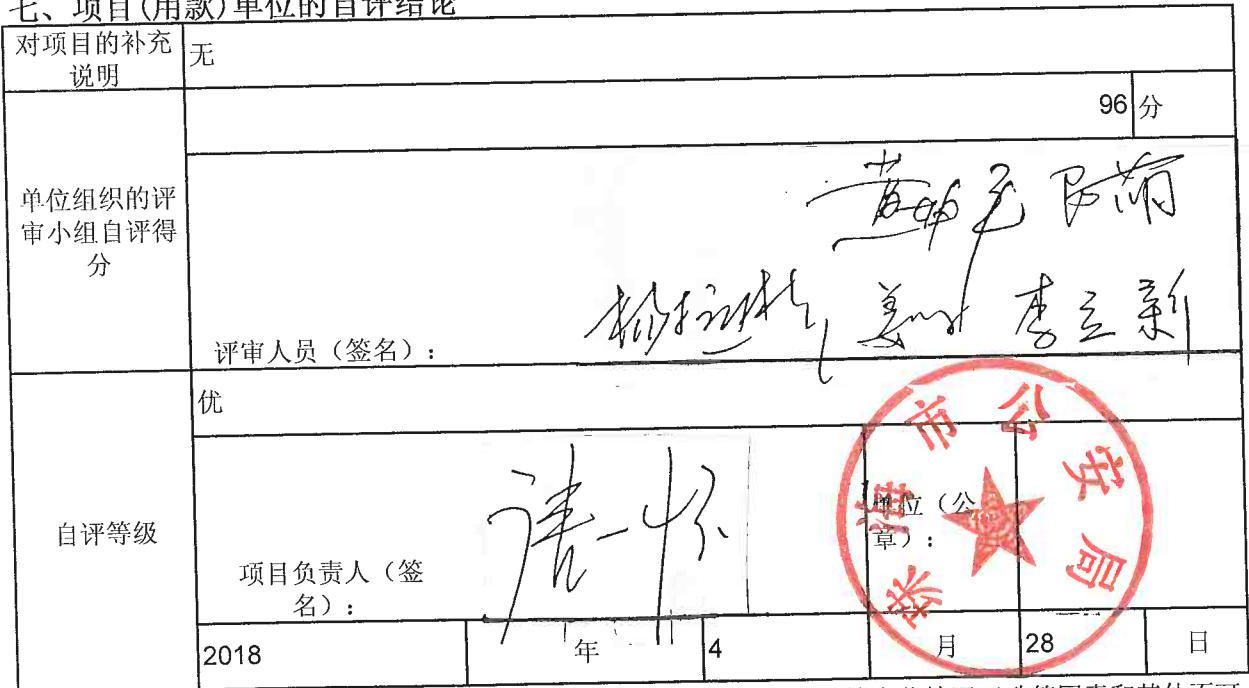 七、项目(用款)单位的自评结论
对项目的补充
说明
无
96 分
单位组织的评
审小组自评得
分
李立新
评审人员（签名）：
自评等级
优
项目负责人（签
名）：
单位（公
章）：
珠海市公安局
2018 年 4 月 28 日